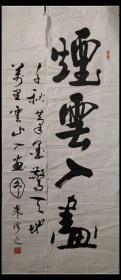 煙雲入畫
千秋筆墨驚天地
萬里雲山入畫圖 朱